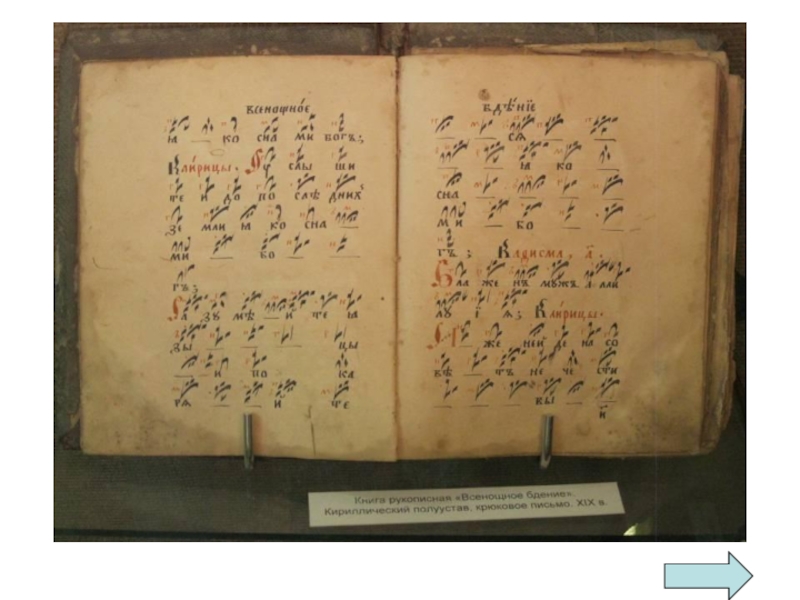 всенощное
ꙗ ко сна ми богъ:
Клирицы.
ши
те и до по слѣ днихъ
зе мли ꙗ ко сна
ми бо
гъ:
Ра зу мѣ и те ꙗ
зы цы
и по ка
рѧ и те
бдѣнїе
сѧ
ꙗ ко
сна
ми бо
гъ: Каѳисма, а҃.
Бла же нъ мужъ. а лли
лу і ꙗ: Клирицы.
же не и де на со
вѣ тъ не че сти
вы
й
Книга рукописная «Всенощное бдение».
Кириллический полуустав, крюковое письмо. XIX в.